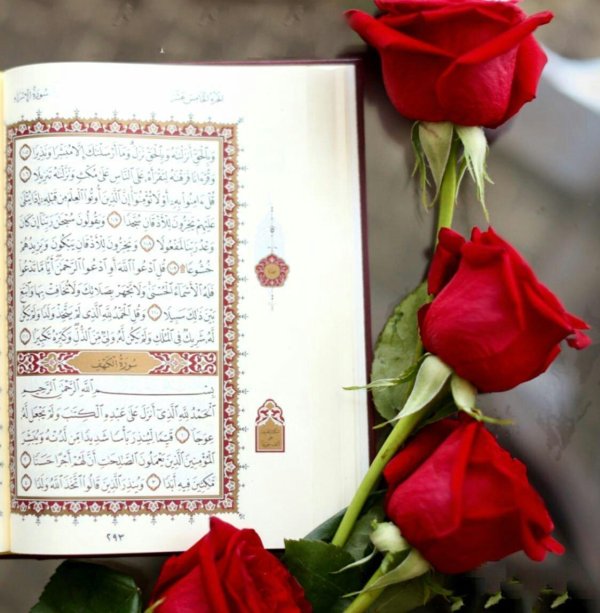 سورة الإسراء
الجزء الخامس عشر
وبالحق أنزلناه وبالحق نزل وما أرسلناك إلا مبشرا ونذيرا ١٠٥
وقرءانا فرقناه لتقرأه على الناس على مكث ونزلناه تنزيلا ١٠٦
قل ءامنوا به أو لا تؤمنوا إن الذين أوتوا العلم من قبله إذا يتلى
عليهم يخرون للأذقان سجدا ١٠٧ ويقولون سبحان ربنا إن كان
وعد ربنا لمفعولا ١٠٨ ويخرون للأذقان يبكون ويزيدهم
خشوعا ١٠٩ قل ادعوا الله أو ادعوا الرحمن أيا ما تدعوا
فله الأسماء الحسنى ولا تجهر بصلاتك ولا تخافت بها وابتغ
بين ذلك سبيلا ١١٠ وقل الحمد لله الذي لم يتخذ ولدا ولم يكن
له شريك في الملك ولم يكن له ولي من الذل وكبره تكبيرا ١١١
سورة الكهف
بسم الله الرحمن الرحيم
الحمد لله الذي أنزل على عبده الكتاب ولم يجعل له
عوجا ١ قيما لينذر بأسا شديدا من لدنه ويبشر
المؤمنين الذين يعملون الصالحات أن لهم أجرا حسنا ٢
ماكثين فيه أبدا ٣ وينذر الذين قالوا اتخذ الله ولدا ٤
٢٩٣